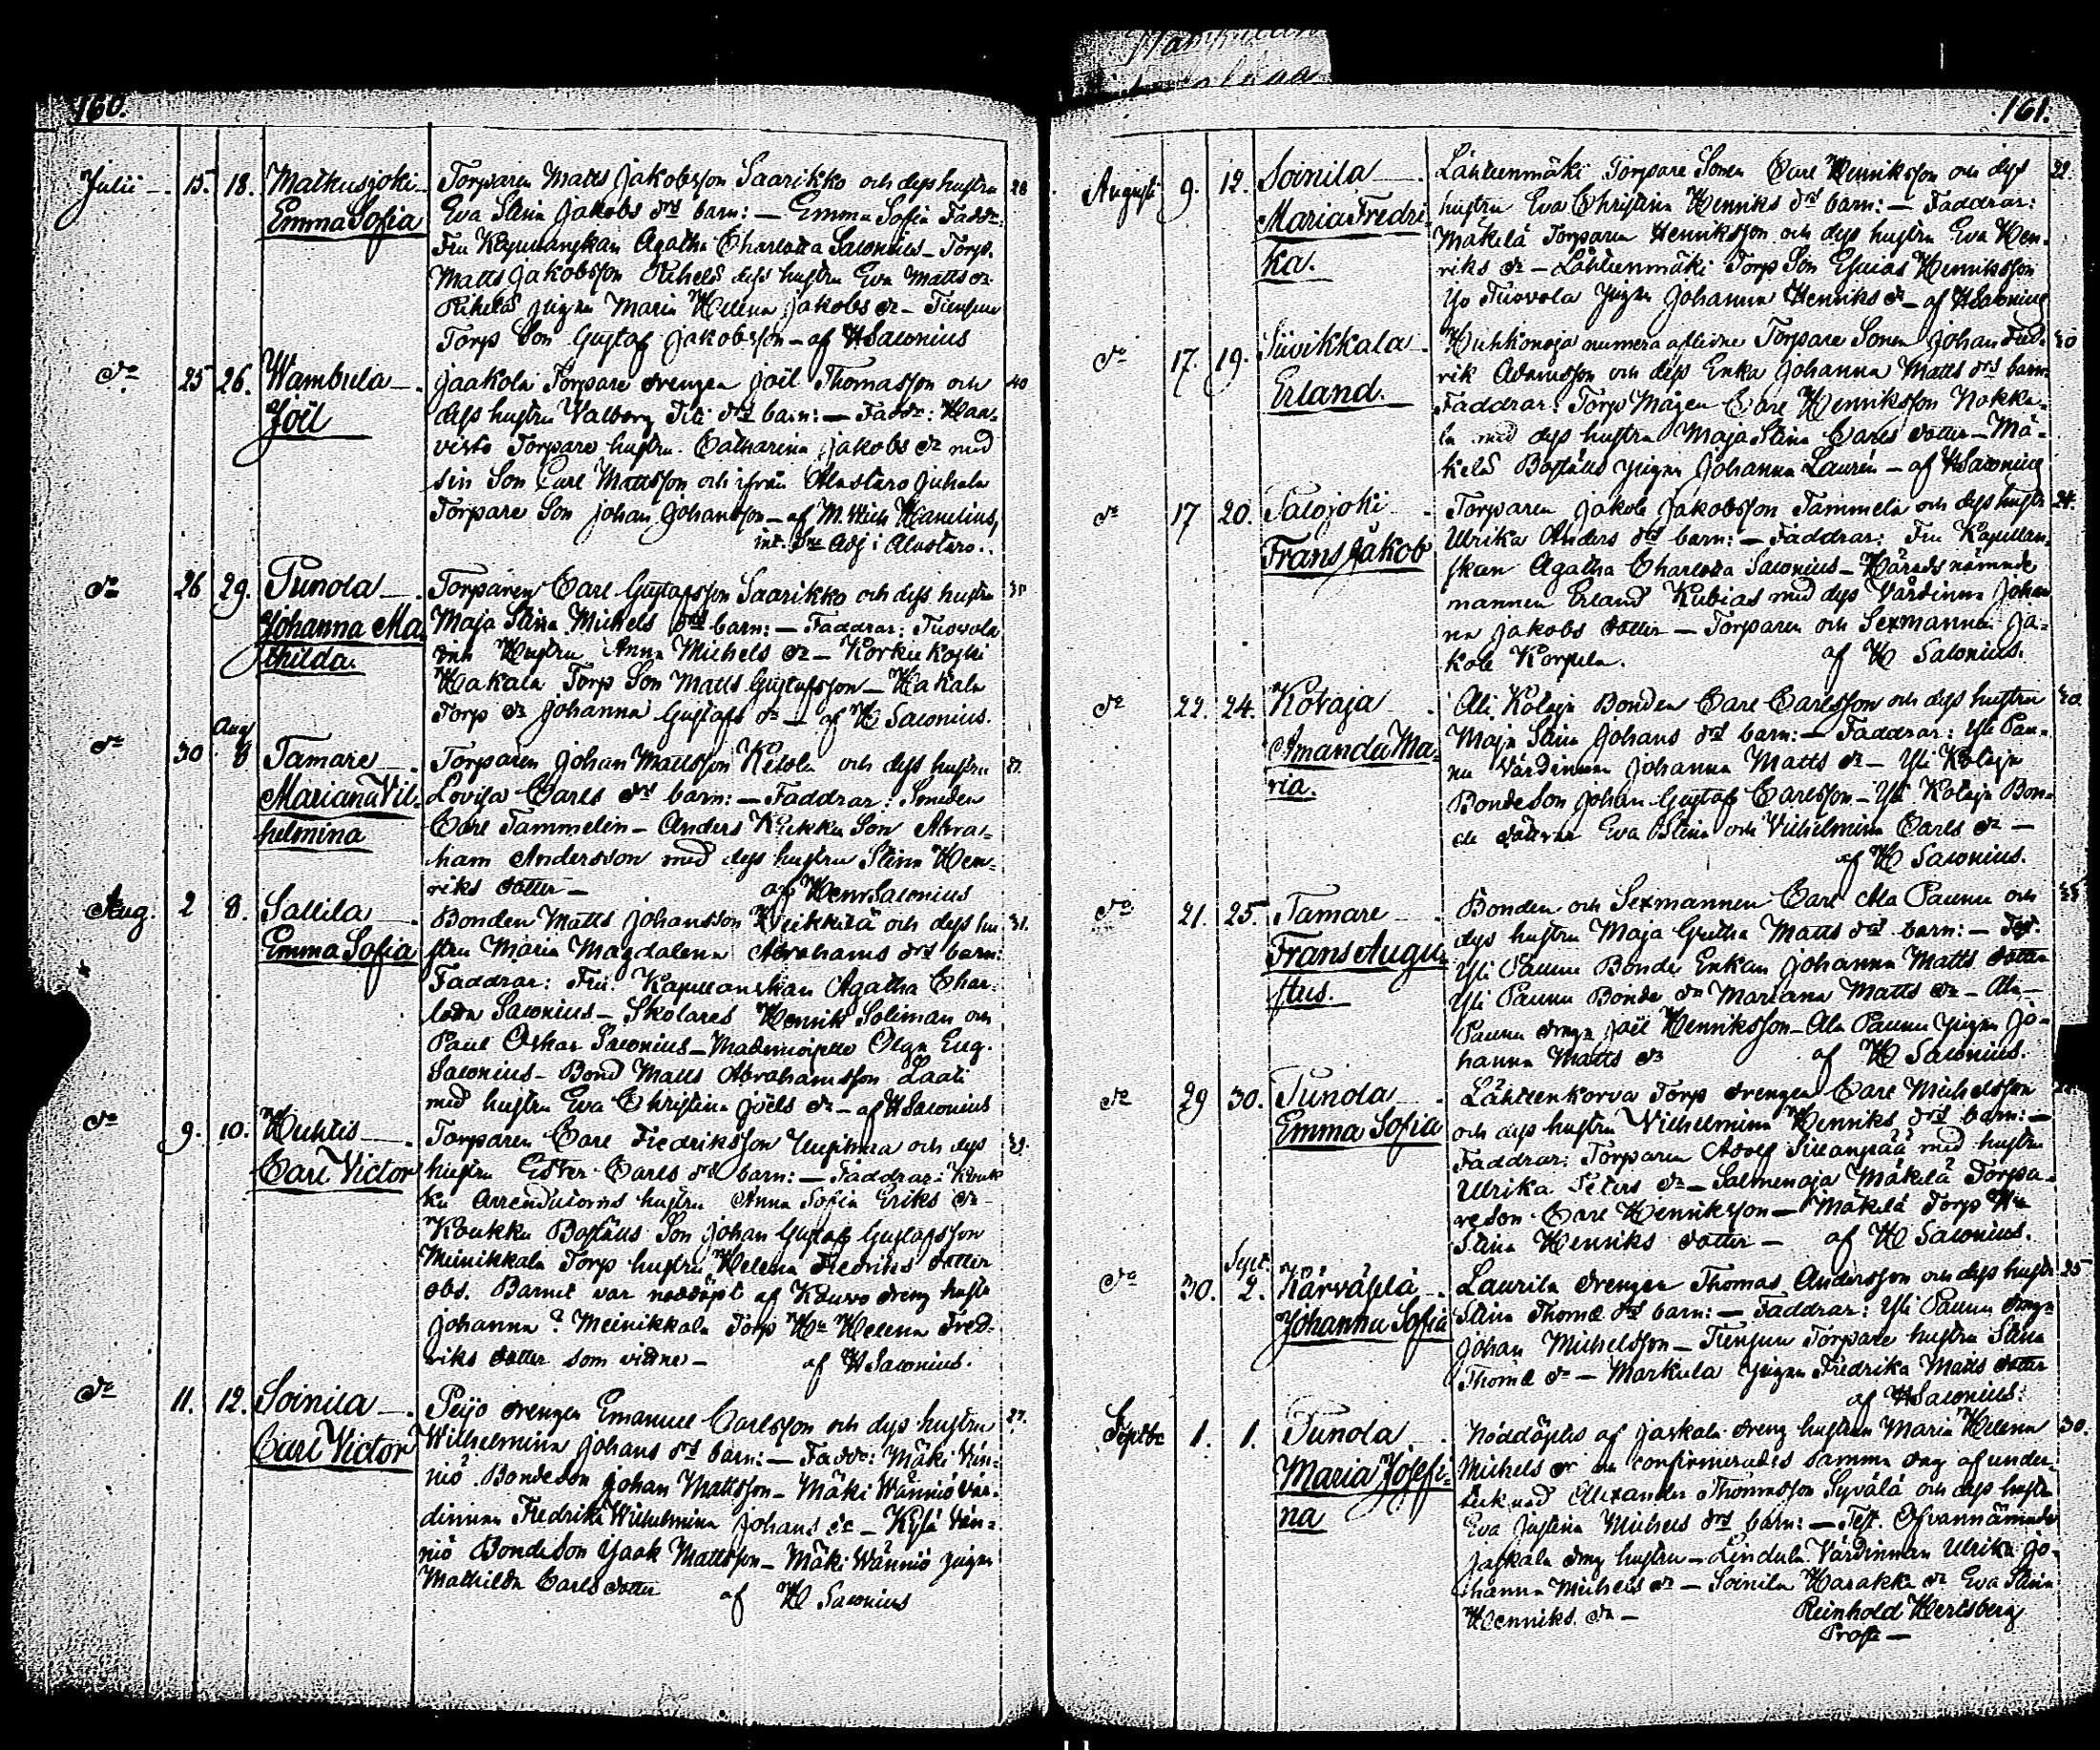 160.
Julii 15. 18. Matkusjoki Torparen Matts Jakobsson Saarikko och dess hustru 28
Emma Sofia Eva Stina Jakobs drs barn: — Emma Sofia Faddr:
Fru Agatha Charlotta Salonius — Torp.
Matts Jakobsson dess hustru Eva Matts dr
pigan Maria Helena Jakobs dr —
Torp Son Gustaf Jakobsson — af H Salonius
do 25 26. Wambula Jaakola Torpare drengen Joël Thomasson och 40
Joël dess hustru Valborg drs barn: — Faddr: Haa-
visto Torpare hustru Catharina Jakobs dr med
sin Son Carl Mattsson och ifrån Alastaro Juhala
Torpare Son Johan Johansson — af M. Wilh Hanelius,
Adj i Alastaro.
do 26 29. Punola Torparen Carl Gustafsson Saarikko och dess hustru
Johanna Ma- Maja Stina Michels drs barn: — Faddrar: Tuovola
thilda. Hustru Anna Michels dr — Korkiakoski
Hakala Torp Son Matts Gustafsson — Hakala
Torp dr Johanna Gustafs dr — af H Salonius.
Aug
do 30 8 Tamare Torparen Johan Mattsson Ketola och dess hustru
Mariana Vil- Lovisa Carls drs barn: — Faddrar: Smeden
helmina Carl Tammelin — Anders Kukku Son Abra-
ham Andersson med dess hustru Stina Hen-
riks dotter — af Henr Salonius
Aug. 2 8. Sallila Bonden Matts Johansson Veikkilä och dess hu 31.
Emma Sofia stru Maria Magdalena Abrahams drs barn:
Faddrar: Fru Kapellanskan Agatha Char-
lotta Salonius — Skolares Henrik Soliman och
Paul Oskar Salonius — Mademoiselle Olga Eug.
Salonius — Bond Matts Abrahamsson Laati
med hustru Eva Christina Joëls dr — af H Salonius
do 9. 10. Huhtis Torparen Carl Fredriksson och dess
Carl Victor hustru Ester Carls drs barn: — Faddrar: Kouk-
ku Arrendatorns hustru Anna Sofia Eriks dr
Koukku Boställs Son Johan Gustaf Gustafsson
Meinikkala Torp hustru Helena Fredriks dotter
obs. Barnet var nöddöpt af Kouvo dreng hustr
Johanna ? Meinikkala Torp Hu Helena Fred-
riks dotter som vittne — af H Salonius.
do 11. 12. Soinila Peijo drengen Emanuel Carlsson och dess hustru 27.
Carl Victor Wilhelmina Johans drs barn: — Faddr: Mäki Vän-
niö Bondeson Johan Mattsson — Mäki Wänniö vär-
dinnan Fredrika Wilhelmina Johans dr — Kylä Vän-
niö Bondeson Isaak Mattsson — Mäki Wänniö pigan
Mathilda Carls dotter af H Salonius
161.
Augusti 9. 12. Soinila Lähteenmäki Torpare Sonen Carl Henriksson och dess 22.
Maria Fredri- hustru Eva Christina Henriks drs barn: — Faddrar:
ka. Mäkelä Torparen Henriksson och dess hustru Eva Hen-
riks dr — Lähteenmäki Torp Son Esaias Henriksson
Tuovola pigan Johanna Henriks dr — af H Salonius
do 17. 19. Suvikkala Huhkonoja numera aflidne Torpare Sonen Johan Fred- 30
Erland. rik Adamsson och dess Enka Johanna Matts drs barn:
Faddrar: Torp Mågen Carl Henriksson Nokka-
la med dess hustru Maja Stina Carls dotter — Mä-
kelä Boställs pigan Johanna Laurén — af H Salonius
do 17 20. Taipjoki Torparen Jakob Jakobsson Tammela och dess hustr 24.
Frans Jakob Ulrika Anders drs barn: — Faddrar: Fru Kapellan-
skan Agatha Charlotta Salonius — Häradsnämnde
mannen Erland Kubias med dess Värdinna Johan
na Jakobs dotter — Torparen och Sexmannen Ja-
kob Korpela. af H Salonius.
do 22. 24. Kolvaja Ali Kolvaja Bonden Carl Carlsson och dess hustru 20.
Amanda Ma- Maja Stina Johans drs barn: — Faddrar: Yli Pau-
ria. nu Värdinnan Johanna Matts dr — Yli
Bondeson Johan Gustaf Carlsson — Yli Bon-
de döttrar Eva Stina och Vilhelmina Carls dr —
af H Salonius.
do 21. 25. Tamare Bonden och Sexmannen Carl Ala Paunu och
Frans Augu- dess hustru Maja Gretha Matts drs barn: — Test.
stus. Yli Paunu Bonde Enkan Johanna Matts dotter
Yli Paunu Bonde dr Mariana Matts dr — Ala
Paunu dreng Joël Henriksson — Ala Paunu pigan Jo-
hanna Matts dr af H Salonius.
do 29 30. Punola Lähteenkorva Torp drengen Carl Michelsson
Emma Sofia och dess hustru Vilhelmina Henriks drs barn: —
Faddrar: Torparen Adolf Sillanpää med hustru
Ulrika Peters dr — Salmenoja Mäkelä Torpa-
reson Carl Henriksson — Mäkelä Torp Hu
Stina Henriks dotter — af H Salonius.
Sept.
do 30. 2. Kärväslä Laurila drengen Thomas Andersson och dess hustr 25
Johanna Sofia Stina Thomæ drs barn: — Faddrar: Yli Paunu drengen
Johan Michelsson — Torpare hustru Stina
Thomæ dr — Markula pigan Fredrika Matts dotter
af H Salonius.
Septbr 1. 1. Punola Nöddöptes af Jaskala dreng hustrun Maria Helena 30.
Maria Josefi- Michels dr confirmerades samma dag af under-
na tecknad Alexander Thomasson Syvälä och dess hustru
Eva Justina Michels drs barn: — Test. Ofvannämnde
Jaskala dreng hustru — Lindula Värdinnan Ulrika Jo-
hanna Michels dr — Soinila Harakka dr Eva Stina
Henriks dr — Reinhold Hertsberg
Prost —